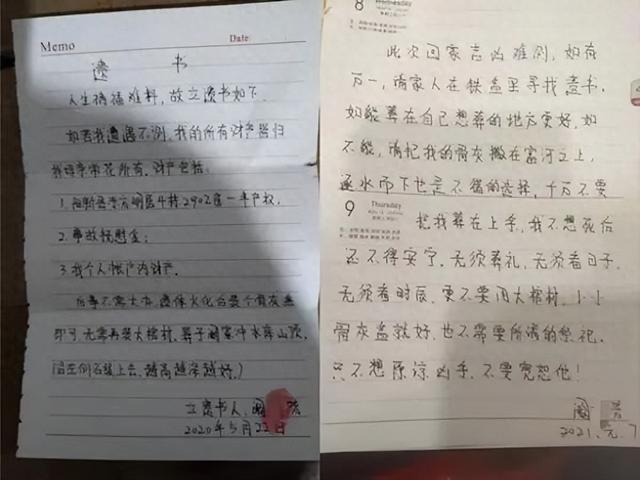 Memo
Date:
遗 书
人生祸福难料,故立遗书如下.
如若我遭遇不测,我的所有财产皆归
所有.财产包括:
一半产权.
2.事故抚慰金;
3.我个人帐户内财产.
后事不需大办.遗体火化后买个骨灰盒
即可.无需再装大棺材.葬于阚家冲水库山顶.
(沿左侧石壁上去.越高越深越好.)
立遗书人:阚
2020年5月22日
8
Wednesday
此次回家吉凶难测,如有
万一,请家人在铁盒里寻找遗书.
如能葬在自己想葬的地方更好,如
不能,请把我的骨灰撒在富河之上,
逐水而下也是不错的选择,千万不要
9
Thursday
把我葬在上丰,我不想死后
还不得安宁.无须葬礼,无须看日子,
无须看时辰,更不要用大棺材.小小
骨灰盒就好,也不需要所谓的祭祀.
只不想原谅凶手.不要宽恕他!
阚
2021.元.7